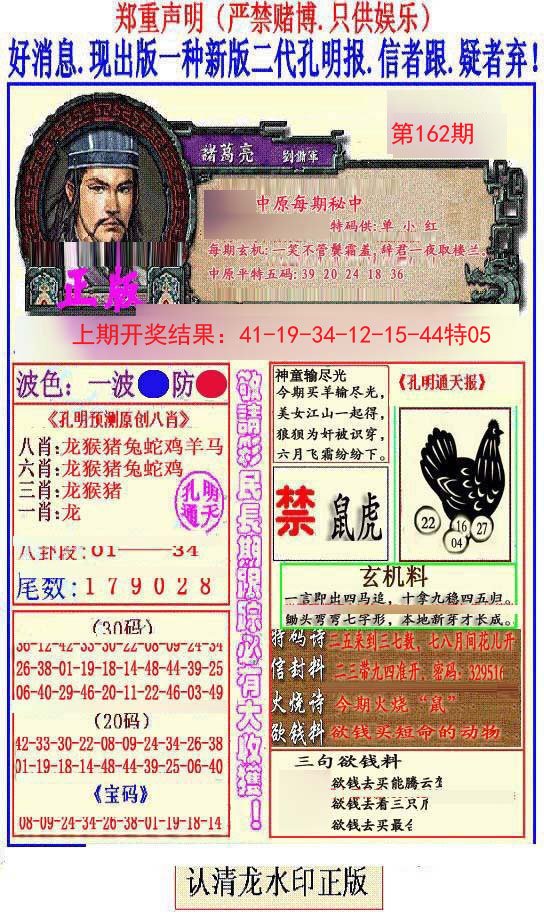 郑重声明（严禁赌博.只供娱乐）
好消息.现出版一种新版二代孔明报.信者跟.疑者弃!
諸葛亮
第162期
中原每期秘中
特码供:单 小 红
每期玄机:一笑不管鬓霜盖,辞君一夜取楼兰。
中原平特五码:39 20 24 18 36
正版
上期开奖结果：41-19-34-12-15-44特05
波色：一波 防
《孔明预测原创八肖》
八肖:龙猴猪兔蛇鸡羊马
六肖:龙猴猪兔蛇鸡
三肖:龙猴猪
一肖:龙
孔明通天
八卦段:01——34
尾数:179028
(30码)
36-12-42-33-30-22-08-09-24-34
26-38-01-19-18-14-48-44-39-25
06-40-29-46-20-11-22-46-03-49
(20码)
42-33-30-22-08-09-24-34-26-38
01-19-18-14-48-44-39-25-06-40
《宝码》
08-09-24-34-26-38-01-19-18-14
敬請彩民長期跟踪必有大收獲！
神童输尽光
今期买羊输尽光，
美女江山一起得，
狼狈为奸被识穿，
六月飞霜纷纷下。
《孔明通天报》
22
16
27
04
禁 鼠虎
玄机料
一言即出四马追，十拿九稳四五归。
锄头弯弯七字形，本地新芽才长成。
特码诗 三五来到三七数，七八月间花儿开
信封料 二三带九四准开，密码：329516
火烧诗 今期火烧“鼠”
欲钱料 欲钱买短命的动物
三句欲钱料
欲钱去买能腾云
欲钱去看三只
欲钱去买最
认清龙水印正版